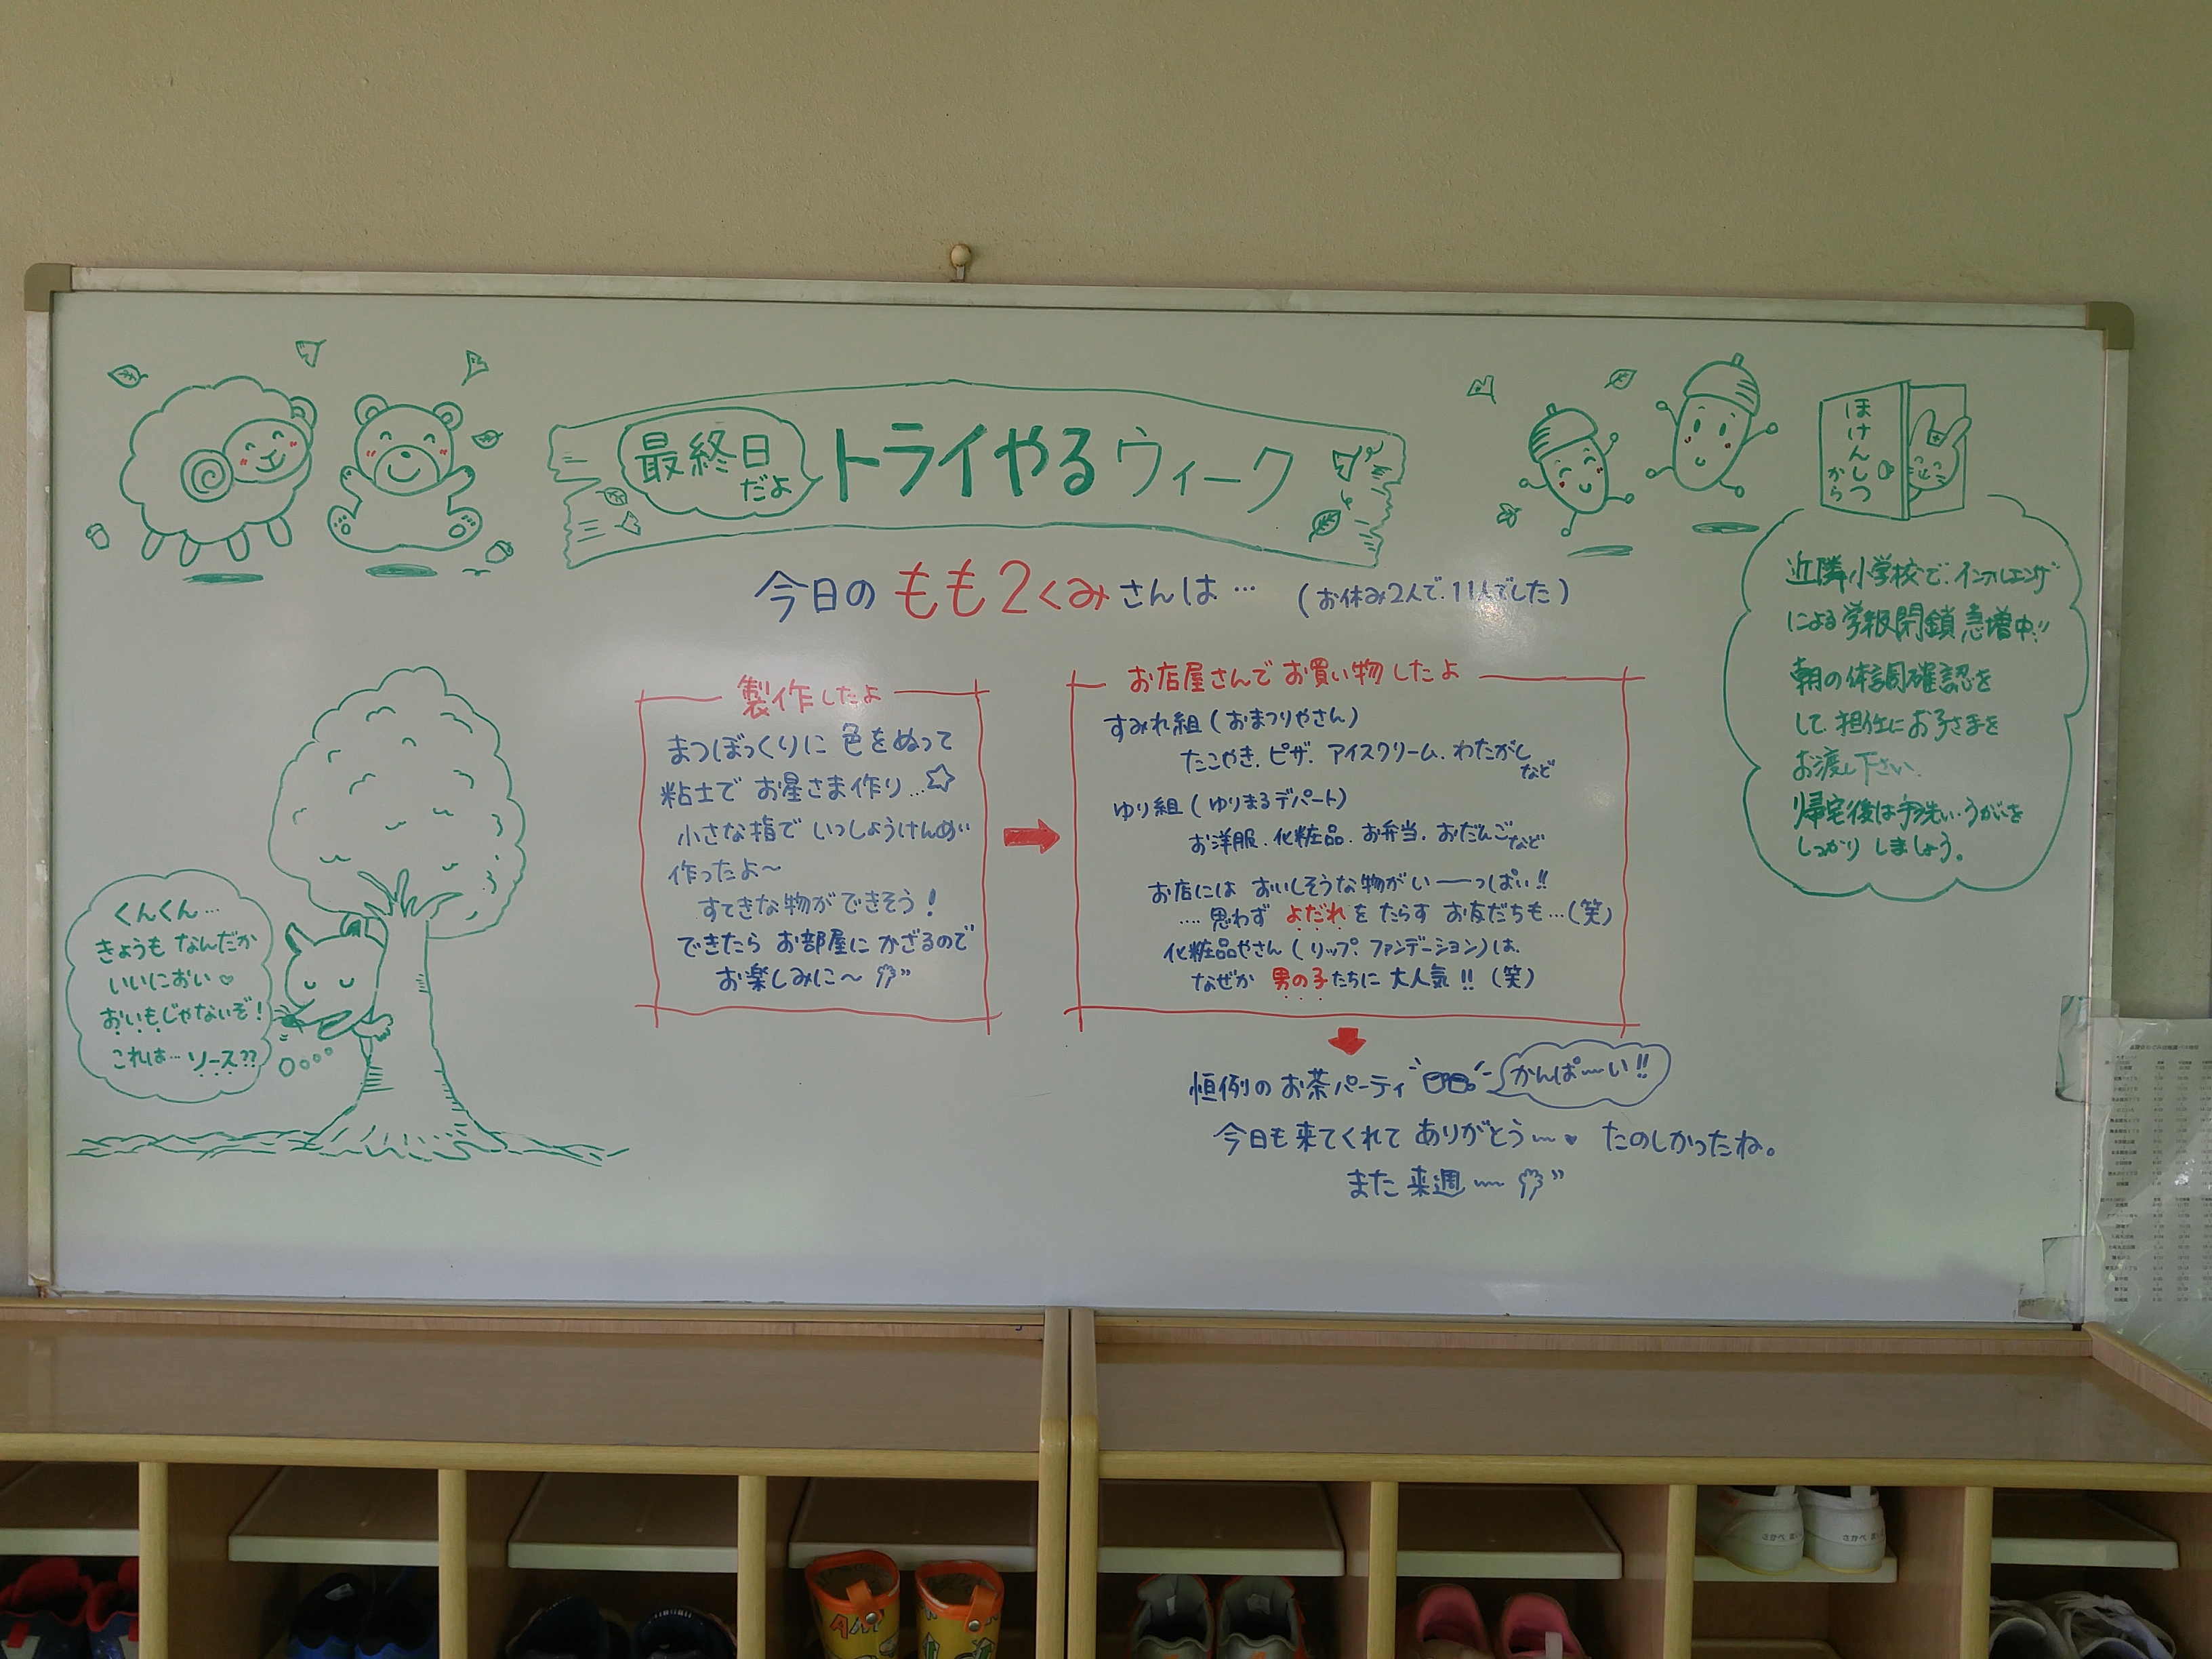 最終日
だよ
トライやるウィーク
今日のもも2くみさんは… (お休み2人で.11人でした)
製作したよ
まつぼっくりに色をぬって
粘土でお星さま作り…☆
小さな指でいっしょうけんめい
作ったよ〜
すてきな物ができそう!
できたらお部屋にかざるので
お楽しみに〜
お店屋さんでお買い物したよ
すみれ組(おまつりやさん)
たこやき.ピザ.アイスクリーム.わたがし
など
ゆり組(ゆりまるデパート)
お洋服.化粧品.お弁当.おだんごなど
お店にはおいしそうな物がい──っぱい!!
‥‥思わずよだれをたらすお友だちも…(笑)
化粧品やさん(リップ.ファンデーション)は.
なぜか男の子たちに大人気!!(笑)
恒例のお茶パーティ
かんぱ〜い!!
今日も来てくれてありがとう〜♥ たのしかったね。
また来週〜
くんくん…
きょうもなんだか
いいにおい♡
おいもじゃないぞ!
これは…ソース??
ほけんしつ
から
近隣小学校で.インフルエンザ
による学級閉鎖急増中!!
朝の体調確認を
して.担任にお子さまを
お渡し下さい.
帰宅後は手洗い・うがいを
しっかりしましょう。